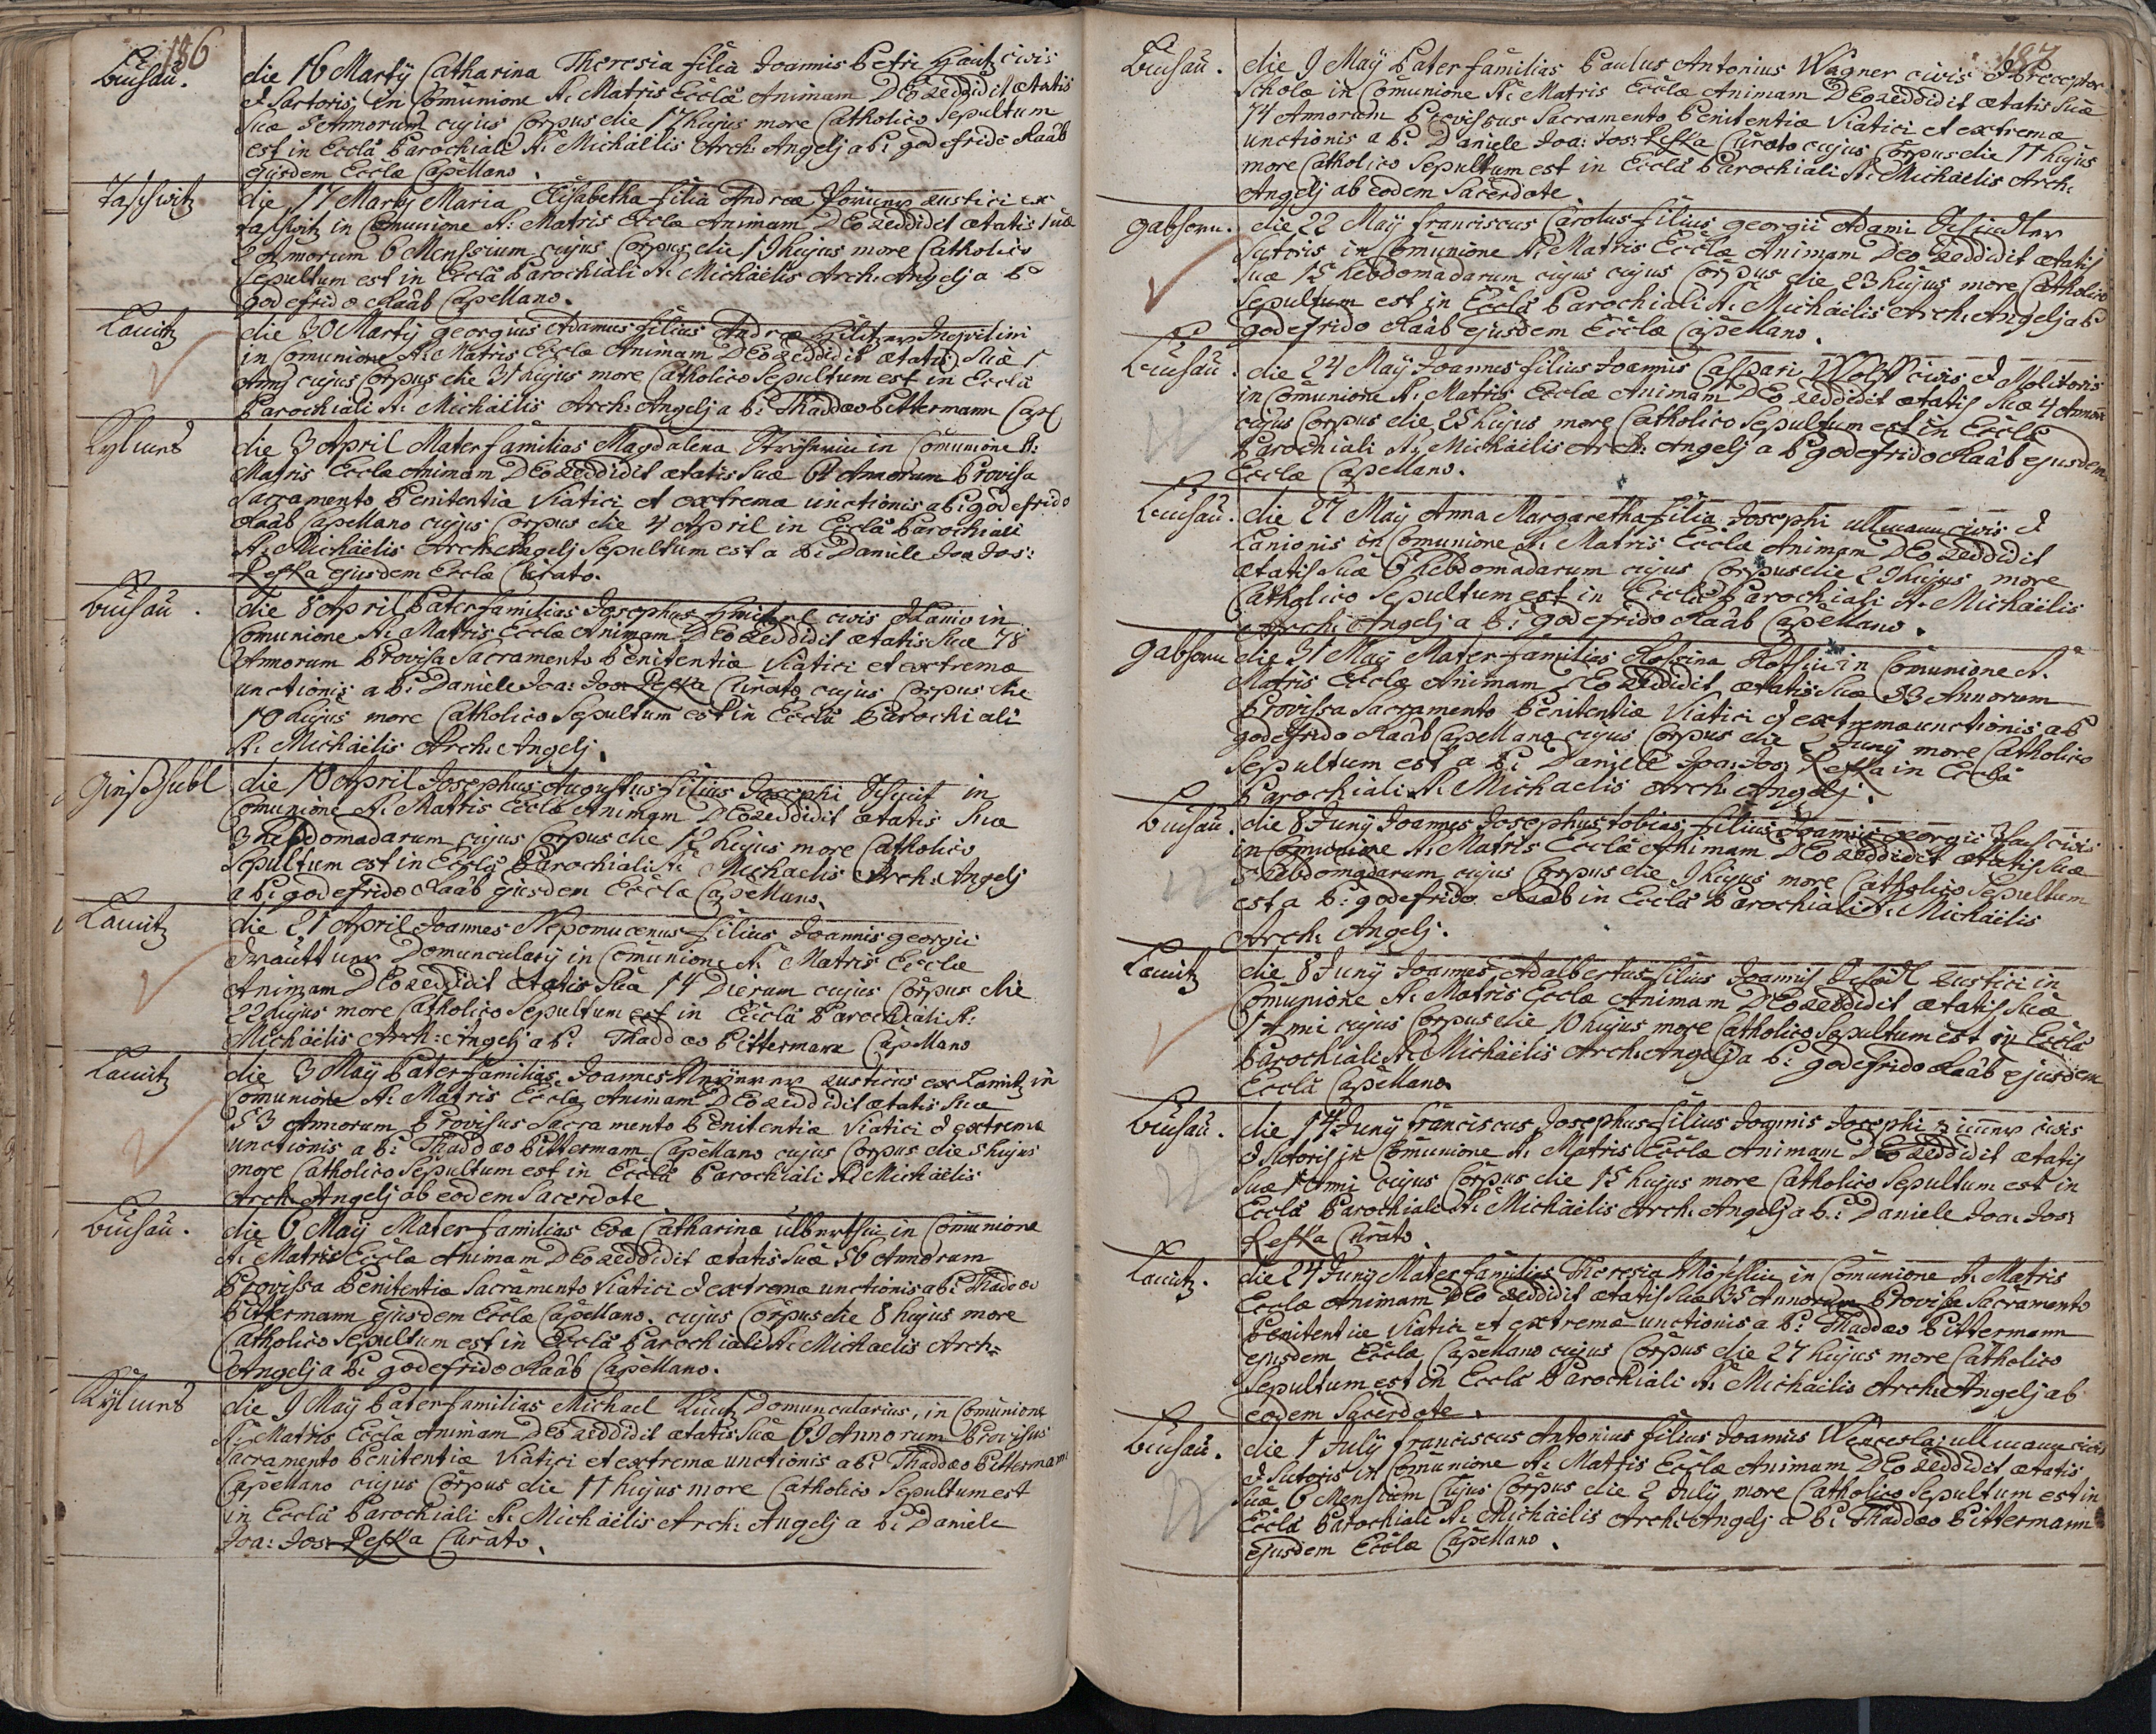 186
Buchau.
die 16 Martij Catharina Theresia filia Joannis Petri Hautz civis
& Sartoris, in Comunione S: Matris Eccla Animam DEo reddidit ætatis
Suæ 5 Annorum cujus Corpus die 17 hujus more Catholico Sepultum
est in Eccla Parochiali S: Michäelis Arch: Angelj a P: godefrido Raab
ejusdem Ecclæ Capellano.
Taschwitz
die 17 Martij Maria Elisabetha filia Andreæ rustici ex
Taschwitz in Comunione S: Matris Ecclæ Animam DEo reddidit ætatis suæ
2 Annorum 6 Menssium cujus Corpus die 19 hujus more Catholico
Sepultum est in Eccla Parochiali S: Michäelis Arch: Angelj a P:
godefrido Raab Capellano.
Lantitz
die 30 Martij georgius Adamus filius Andreæ Hiltzner Inquilini
in Comunione S: Matris Ecclæ Animam DEo reddidit ætatis Suæ 1
Anni cujus Corpus die 31 hujus more Catholico Sepultum est in Eccla
Parochiali S: Michäelis Arch: Angelj a P: Thaddæo Pittermann Cap
die 3 April Materfamilias Magdalena in Comunione S:
Matris Ecclæ Animam DEo reddidit ætatis Suæ 61 Annorum Provisa
Sacramento Penitentiæ Viatici et extremæ unctionis a P: godefrido
Raab Capellano cujus Corpus die 4 April in Eccla Parochiali
S: Michäelis Arch: Angelj Sepultum est a P: Daniele Joa: Jos:
Peska ejusdem Ecclæ Curato.
Buchau.
die 8 April Paterfamilias Josephus civis & Lanio in
Comunione S: Matris Ecclæ Animam DEo reddidit ætatis Suæ 78
Annorum Provisa Sacramento Penitentiæ Viatici et extremæ
unctionis a P: Daniele Joa: Jos: Peska Curato cujus Corpus die
10 hujus more Catholico Sepultum est in Eccla Parochiali
S: Michäelis Arch: Angelj.
die 10 April Josephus Augustus filius Josephi in
Comunione S: Matris Ecclæ Animam DEo reddidit ætatis Suæ
3 hebdomadarum cujus Corpus die 12 hujus more Catholico
Sepultum est in Eccla Parochiali S: Michaelis Arch: Angelj
a P: godefrido Raab ejusdem Ecclæ Capellano.
Lantitz
die 21 April Joannes Nepomucenus filius Joannis georgii
Domuncularij in Comunione S: Matris Ecclæ
Animam DEo reddidit ætatis Suæ 14 Dierum cujus Corpus die
22 hujus more Catholico Sepultum est in Eccla Parochiali S:
Michäelis Arch: Angelj a P: Thaddæo Pittermann Capellano
Lantitz
die 3 Maij Paterfamilias Joannes rusticus ex Lantitz in
Comunione S: Matris Ecclæ Animam DEo reddidit ætatis Suæ
53 Annorum Provisus Sacramento Penitentiæ Viatici & extremæ
unctionis a P: Thaddæo Pittermann Capellano cujus Corpus die 5 hujus
more Catholico Sepultum est in Eccla Parochiali S: Michäelis
Arch: Angelj ab eodem Sacerdote
Buchau.
die 6 Maij Materfamilias Eva Catharina in Comunione
S: Matris Ecclæ Animam DEo reddidit ætatis Suæ 56 Annorum
Provissa Penitentiæ Sacramento Viatici & extremæ unctionis a P: Thaddæo
Pittermann ejusdem Ecclæ Capellano. cujus Corpus die 8 hujus more
Catholico Sepultum est in Eccla Parochiali S: Michaelis Arch=
Angelj a P: godefrido Raab Capellano.
die 9 Maij Paterfamilias Michael Domuncularius, in Comunione
S: Matris Ecclæ Animam DEo reddidit ætatis Suæ 69 Annorum Provisus
Sacramento Penitentiæ Viatici et extremæ unctionis a P: Thaddæo Pittermann
Capellano cujus Corpus die 11 hujus more Catholico Sepultum est
in Eccla Parochiali S: Michäelis Arch: Angelj a P: Daniele
Joa: Jos: Peska Curato.
187
Buchau.
die 9 Maij Paterfamilias Paulus Antonius Wagner civis & Preceptor
Scholæ in Comunione S: Matris Ecclæ Animam DEo reddidit ætatis Suæ
74 Annorum Provissus Sacramento Penitentiæ Viatici et extremæ
unctionis a P: Daniele Joa: Jos: Peska Curato cujus Corpus die 11 hujus
more Catholico Sepultum est in Eccla Parochiali S: Michäelis Arch:
Angelj ab eodem Sacerdote
gabhorn.
die 22 Maij franciscus Carolus filius georgii Adami Schindler
Sutoris in Comunione S: Matris Ecclæ Animam Deo reddidit ætatis
Suæ 15 hebdomadarum cujus cujus Corpus die 23 hujus more Catholico
Sepultum est in Eccla Parochiali S: Michäelis Arch: Angelj a P
godefrido Raab ejusdem Ecclæ Capellano.
Buchau.
die 24 Maij Joannes filius Joannis Caspari Wolff civis & Molitoris
in Comunione S: Matris Ecclæ Animam DEo reddidit ætatis Suæ 4 Annor
cujus Corpus die 25 hujus more Catholico Sepultum est in Eccla
Parochiali S: Michäelis Arch: Angelj a P godefrido Raab ejusdem
Ecclæ Capellano.
Buchau.
die 27 Maij Anna Margaretha filia Josephi ullmann civis &
Lanionis in Comunione S: Matris Ecclæ Animam DEo reddidit
ætatis Suæ 6 hebdomadarum cujus Corpus die 29 hujus more
Catholico Sepultum est in Eccla Parochiali S: Michäelis
Arch: Angelj a P: godefrido Raab Capellano.
gabhorn
die 31 Maij Materfamilias Rosina in Comunione S.
Matris Ecclæ Animam DEo reddidit ætatis Suæ 33 Annorum
Provissa Sacramento Penitentiæ Viatici & extremæ unctionis a P
godefrido Raab Capellano cujus Corpus die 2 Junij more Catholico
Sepultum est a P: Daniele Joa: Jos: Peska in Eccla
Parochiali S: Michaelis Arch: Angelj.
Buchau.
die 8 Junij Joannes Josephus tobias filius Joannis georgii civis
in Comunione S: Matris Ecclæ Animam DEo reddidit ætatis Suæ
5 hebdomadarum cujus Corpus die 9 hujus more Catholico Sepultum
est a P: godefrido Raab in Eccla Parochiali S: Michäelis
Arch: Angelj.
Lantitz
die 8 Junij Joannes Adalbertus filius Joannis rustici in
Comunione S: Matris Ecclæ Animam DEo reddidit ætatis Suæ
1 Anni cujus Corpus die 10 hujus more Catholico Sepultum est in Eccla
Parochiali S: Michäelis Arch: Angelj a P: godefrido Raab ejusdem
Eccla Capellano
Buchau.
die 14 Junij franciscus Josephus filius Joannis Josephi civis
& Sutoris in Comunione S: Matris Ecclæ Animam DEo reddidit ætatis
Suæ 1 Anni cujus Corpus die 15 hujus more Catholico Sepultum est in
Eccla Parochiali S: Michäelis Arch: Angelj a P: Daniele Joa: Jos:
Peska Curato.
Lantitz.
die 24 Junij Materfamilias Theresia in Comunione S: Matris
Ecclæ Animam DEo reddidit ætatis Suæ 35 Annorum Provisa Sacramento
Penitentiæ Viatici et extremæ unctionis a P: Thaddæo Pittermann
ejusdem Ecclæ Capellano cujus Corpus die 27 hujus more Catholico
Sepultum est in Eccla Parochiali S: Michäelis Arch: Angelj ab
eodem Sacerdote.
Buchau.
die 1 Julij franciscus Antonius filius Joannis Wenceslaj ullmann civis
& Sutoris in Comunione S: Matris Ecclæ Animam DEo reddidit ætatis
Suæ 6 Mensium Cujus Corpus die 2 Julij more Catholico Sepultum est in
Eccla Parochiali S: Michäelis Arch: Angelj a P: Thaddæo Pittermann
ejusdem Ecclæ Capellano.